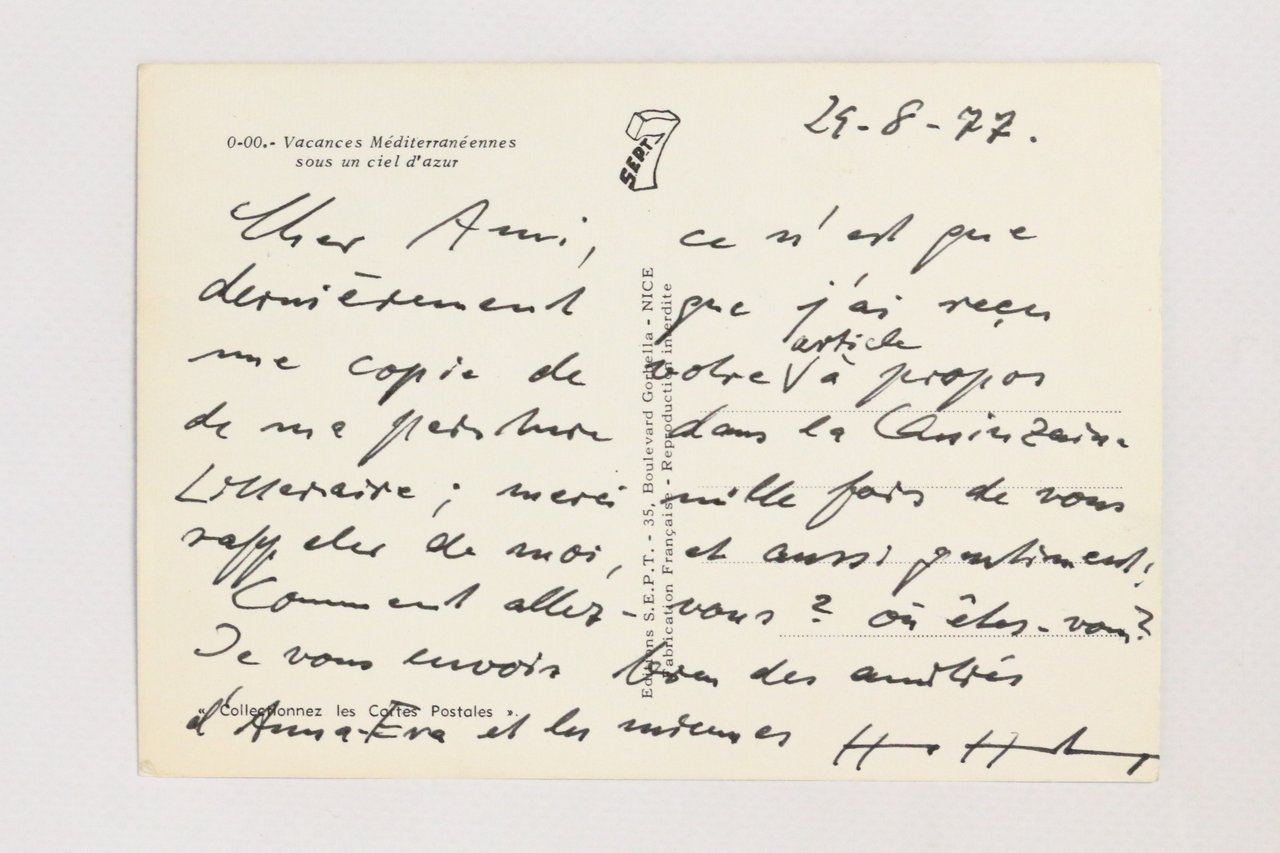 0-00.- Vacances Méditerranéennes
sous un ciel d'azur
SEPT
29-8-77.
Cher Ami, ce n'est que
dernièrement que j'ai reçu
une copie de votre article à propos
de ma peinture dans la Quinzaine
Litteraire ; merci mille fois de vous
rappeler de moi, et aussi gentiment!
Comment allez-vous ? où êtes-vous?
Je vous envoie bien des amitiés
d'Anna-Eva et les miennes
« Collectionnez les Cartes Postales ».
Editions S.E.P.T. - 35, Boulevard Gorbella - NICE
Fabrication Française - Reproduction interdite